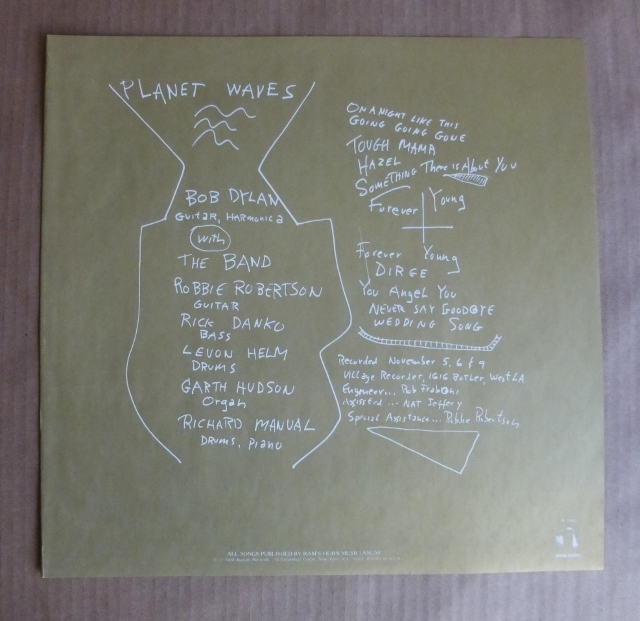 PLANET WAVES
BOB DYLAN
GUITAR, HARMONICA
with
THE BAND
ROBBIE ROBERTSON
GUITAR
RICK DANKO
BASS
LEVON HELM
DRUMS
GARTH HUDSON
Organ
RICHARD MANUAL
DRUMS, Piano
ON A NIGHT LIKE THIS
GOING GOING GONE
TOUGH MAMA
HAZEL
SOMETHING There is About You
Forever Young
Forever Young
DIRGE
You Angel You
NEVER SAY GOODBYE
WEDDING SONG
Recorded November 5, 6 & 9
Village Recorder, 1616 Butler, West LA
Engineer... Rob Fraboni
Assisted... NAT Jeffery
Special Assistance... Robbie Robertson
ALL SONGS PUBLISHED BY RAM'S HORN MUSIC (ASCAP)